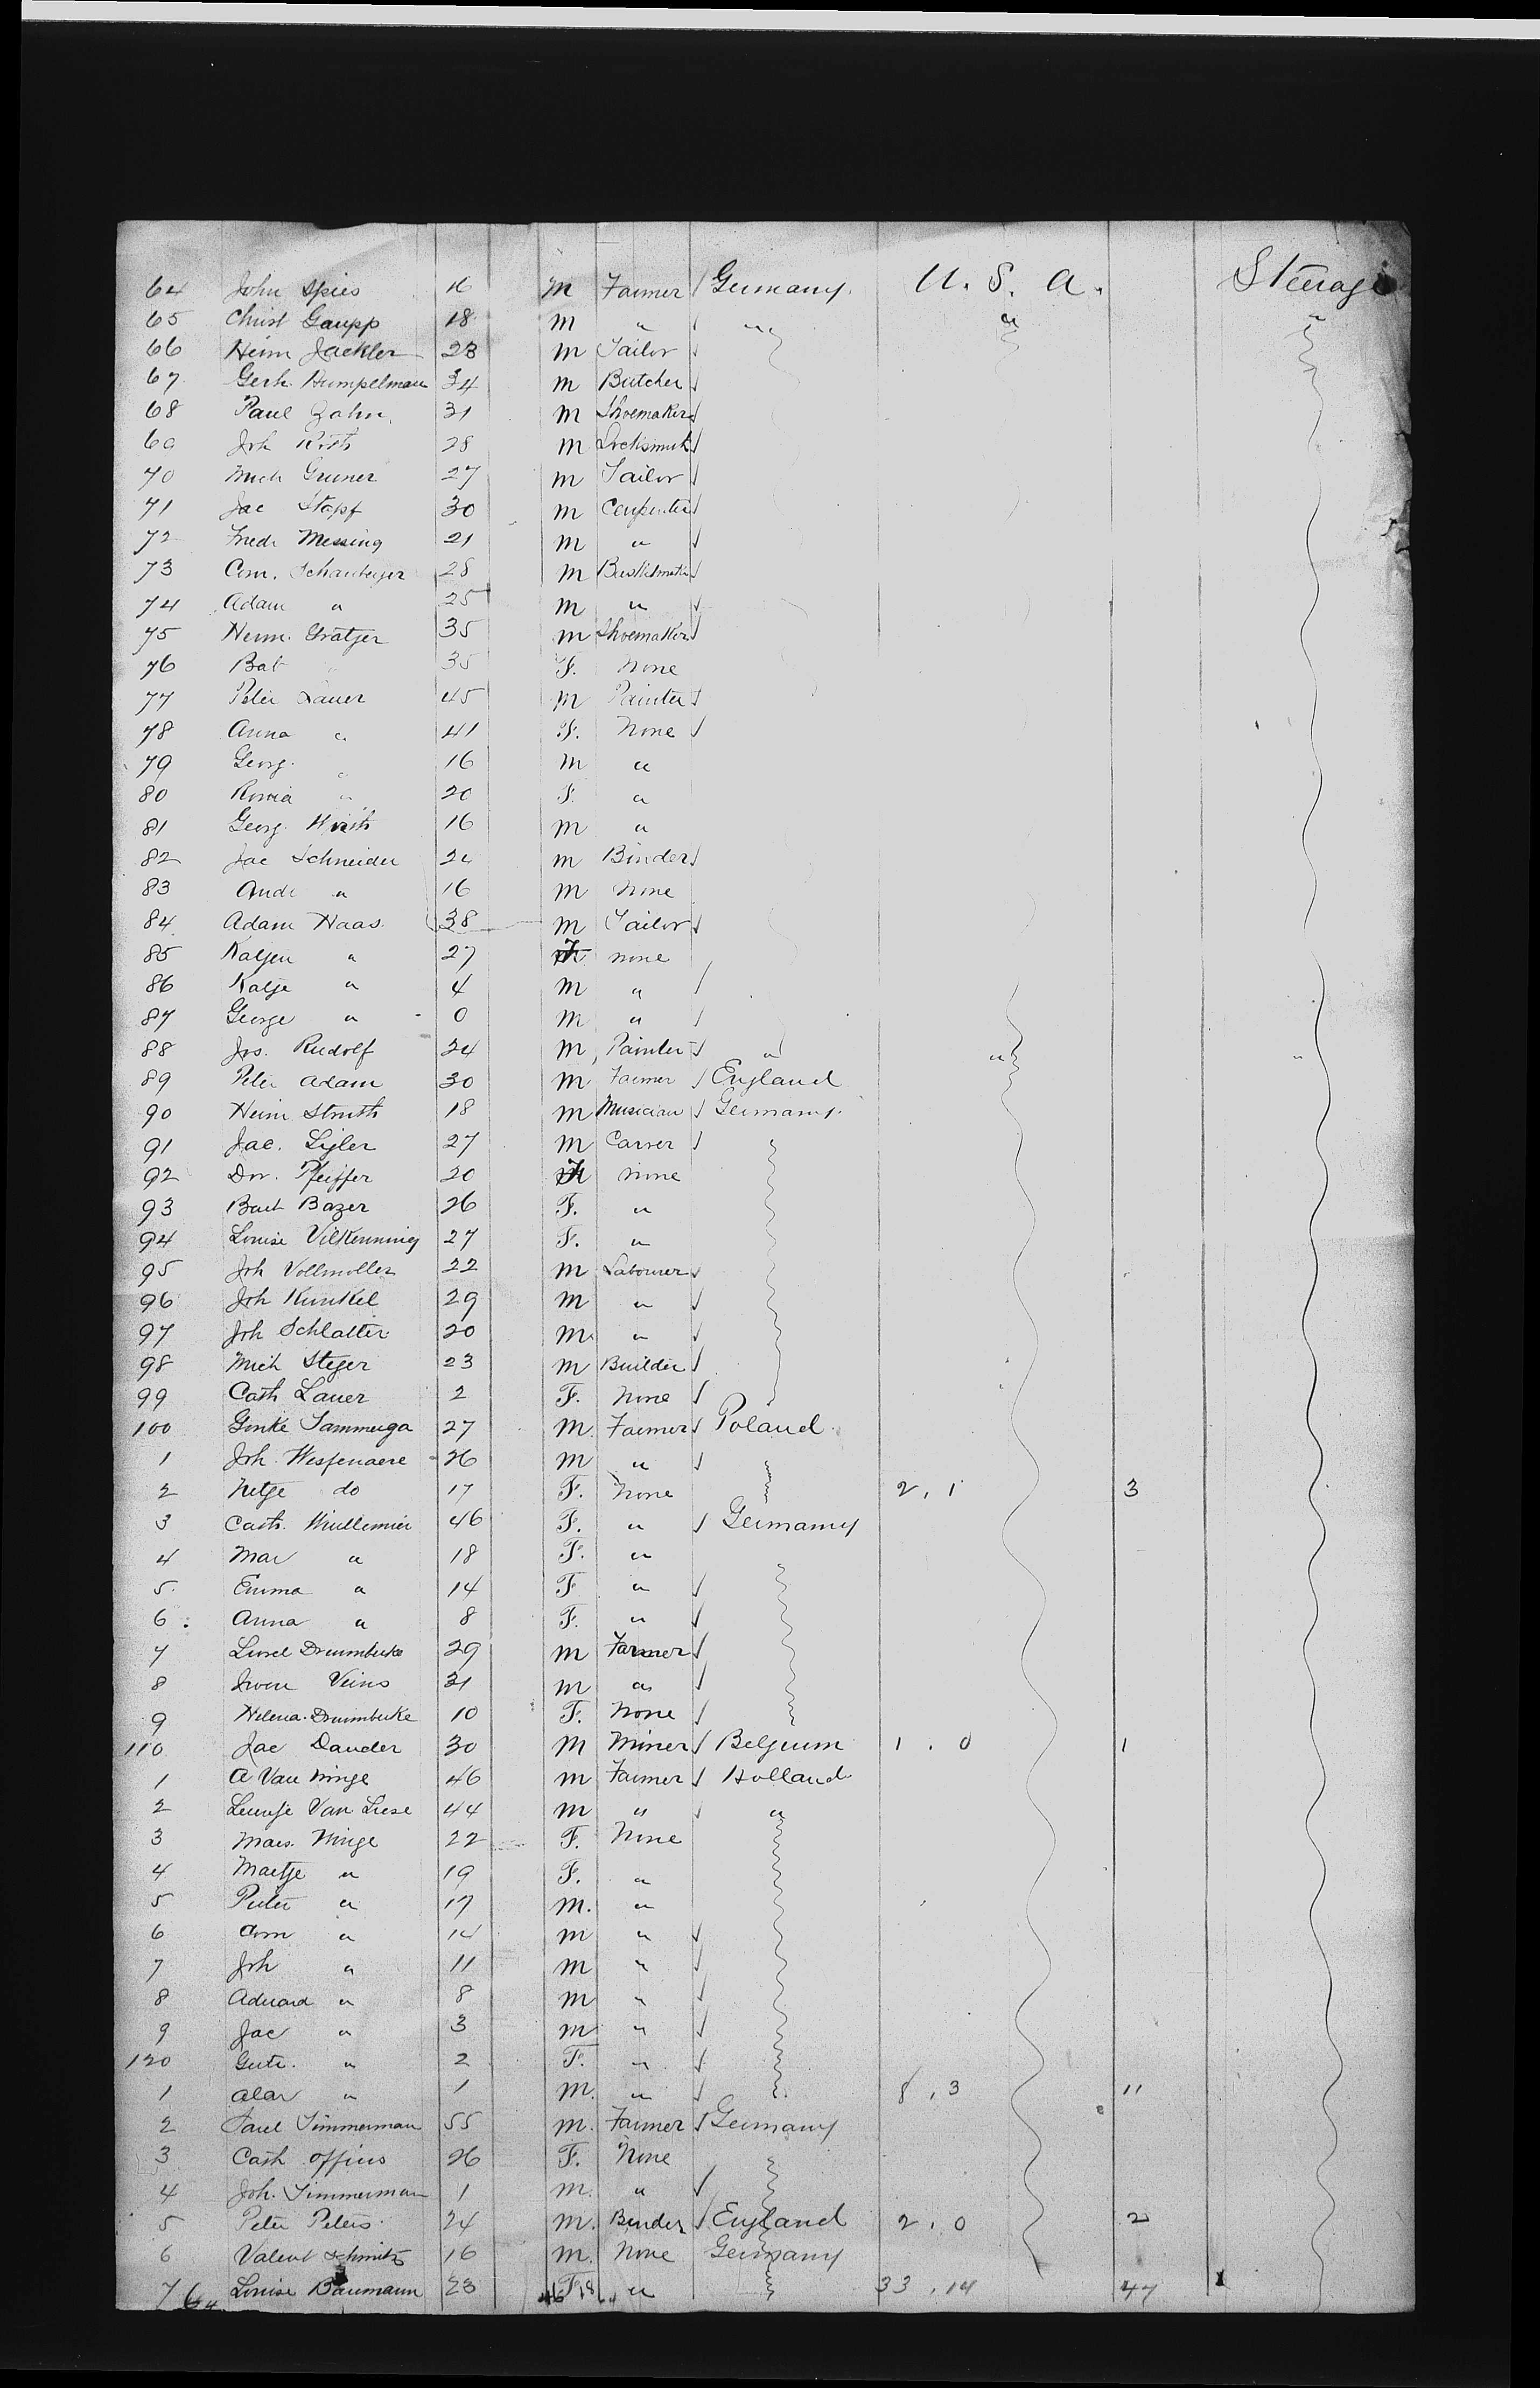 64 John Spies 16 M Farmer Germany. U. S. A. Steerage
65 Christ Gaupp 18 M " " " "
66 Heinr Jackler 23 M Tailor
67 Gerh. Rumpelman 34 M Butcher
68 Paul Zahn 31 M Shoemaker
69 Joh 28 M Locksmith
70 Mich Gruner 27 M Tailor
71 Jac Stopf 30 M Carpenter
72 Fredr Messing 21 M "
73 28 M
74 Adam " 25 M "
75 Herm. Gratzer 35 M Shoemaker
76 Bab 35 F. None
77 Peter Lauer 45 M Painter
78 Anna " 41 F. None
79 Georg " 16 M "
80 " 20 F. "
81 Georg 16 M "
82 Jac Schneider 24 M Binder
83 Andr " 16 M None
84 Adam Haas 38 M Tailor
85 Katjen " 27 F none
86 Katje " 4 M "
87 George " 0 M "
88 Jos. Rudolf 24 M Painter " " "
89 Peter Adam 30 M Farmer England
90 Heinr Struth 18 M Musician Germany
91 Jac. Sigler 27 M Carver
92 Dor. Pfeiffer 20 F None
93 Bart Bazer 26 F. "
94 Louise Vilkenning 27 F. "
95 Joh Vollmoller 22 M Labourer
96 Joh Kunkel 29 M "
97 Joh Schlatter 20 M "
98 Mich Steger 23 M Builder
99 Cath Lauer 2 F. None
100 Gonke Tammega 27 M. Farmer Poland
1 Joh. Wespenaere 26 M "
2 Netje do 17 F. None 2, 1 3
3 Cath. Mullemier 46 F. " Germany
4 Mar " 18 F. "
5 Emma " 14 F "
6 Anna " 8 F. "
7 Drumbuke 29 M Farmer
8 Veins 31 M "
9 Helena Drumbuke 10 F. None
110 Jac Dauder 30 M Miner Belgium 1 . 0 1
1 A Van Minge 46 M Farmer Holland
2 Van Liese 44 M " "
3 Mars. Minge 22 F. None
4 Maetje " 19 F. "
5 Pieter " 17 M. "
6 " 14 M "
7 Joh " 11 M "
8 Aduard " 8 M "
9 Jac " 3 M "
120 " 2 F. "
1 " 1 M. " 8, 3 11
2 Paul Timmerman 55 M. Farmer Germany
3 Cath Offius 26 F. None
4 Joh. Timmerman 1 M. "
5 Peter Peters 24 M. Binder England 2, 0 2
6 Valent Schmitz 16 M. None Germany
7 Louise Baumann 23 F " 33, 14 47
64 46 18 64